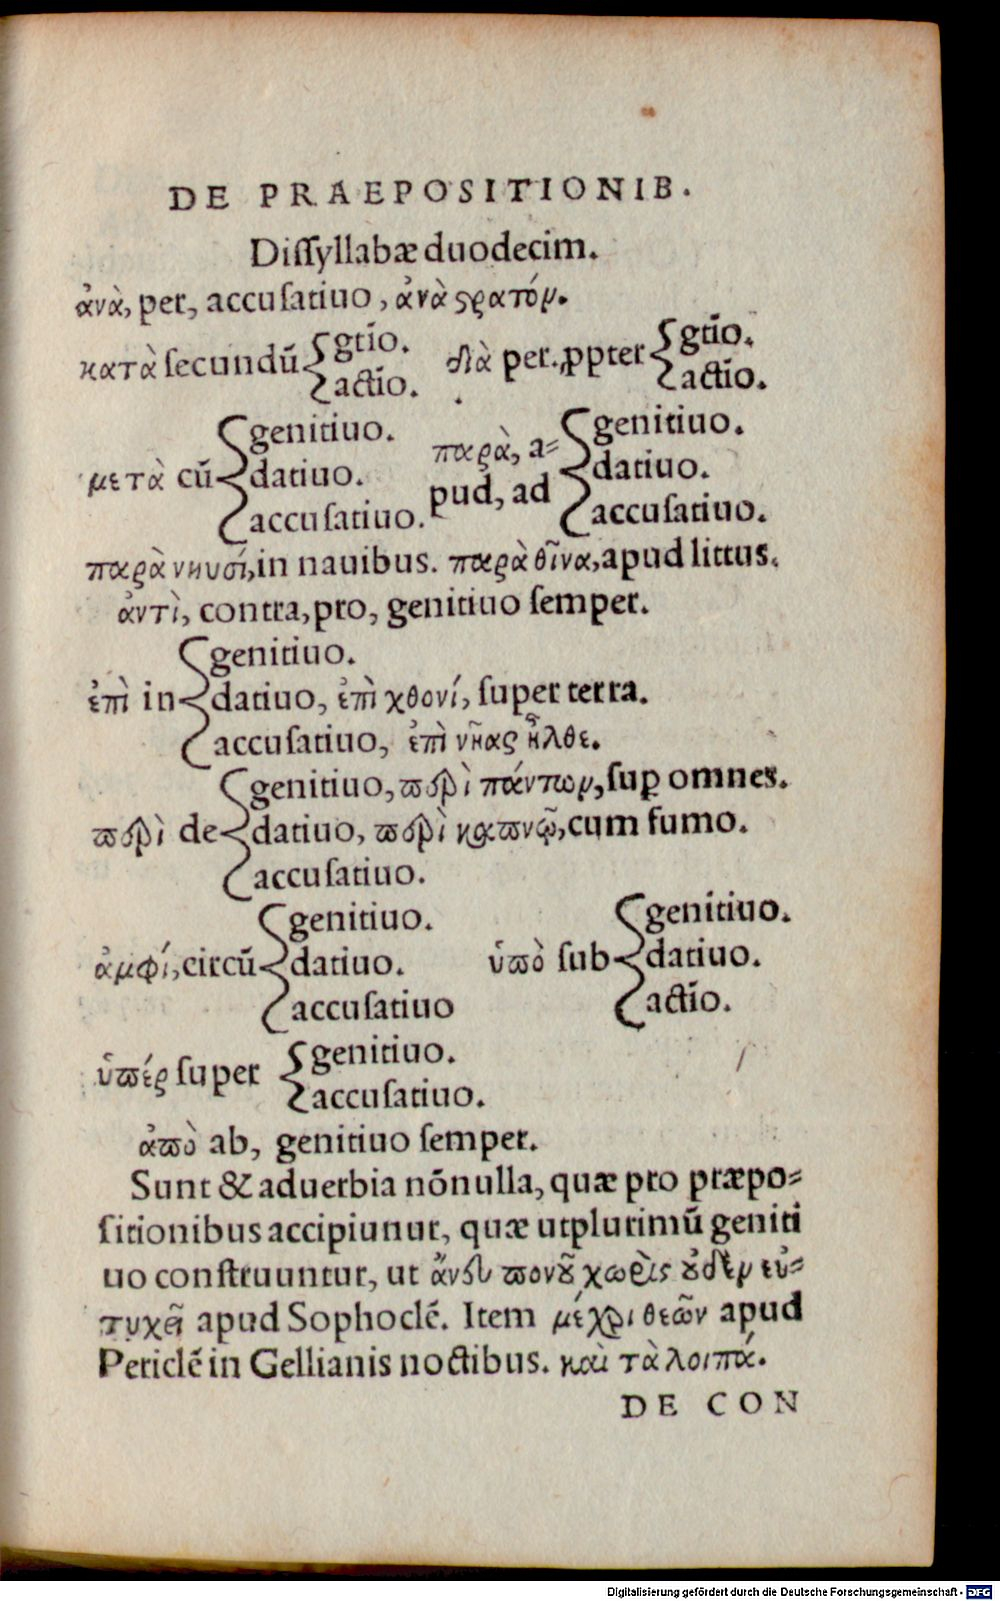 DE PRAEPOSITIONIB.
Diſſyllabæ duodecim.
ἀνὰ, per, accuſatiuo, ἀνὰ ϛρατόν.
κατὰ ſecundū { gtīo. actīo.
διὰ per, ꝓpter { gtīo. actīo.
μετὰ cū { genitiuo. datiuo. accuſatiuo.
παρὰ, a-
pud, ad { genitiuo. datiuo. accuſatiuo.
παρὰ νηυσί, in nauibus. παρὰ θῖνα, apud littus.
ἀντὶ, contra, pro, genitiuo ſemper.
ἐπὶ in { genitiuo.
datiuo, ἐπὶ χθονί, ſuper terra.
accuſatiuo, ἐπὶ νῆας ἦλθε.
ϖερὶ de { genitiuo, ϖερὶ πάντων, suꝑ omnes.
datiuo, ϖερὶ καϖνῷ, cum fumo.
accuſatiuo.
ἀμφί, circū { genitiuo. datiuo. accuſatiuo
ὑϖὸ ſub { genitiuo. datiuo. actīo.
ὑϖέρ ſuper { genitiuo. accuſatiuo.
ἀϖὸ ab, genitiuo ſemper.
Sunt & aduerbia nōnulla, quæ pro præpo-
ſitionibus accipiunur, quæ utplurimū geniti
uo conſtruuntur, ut ἄνευ ϖονȣ͂ χωρὶς ȣ̓δὲν εὐ-
τυχεῖ apud Sophoclē. Item μέχρι θεῶν apud
Periclē in Gellianis noctibus. καὶ τὰ λοιπά.
DE CON
Digitalisierung gefördert durch die Deutsche Forschungsgemeinschaft - DFG